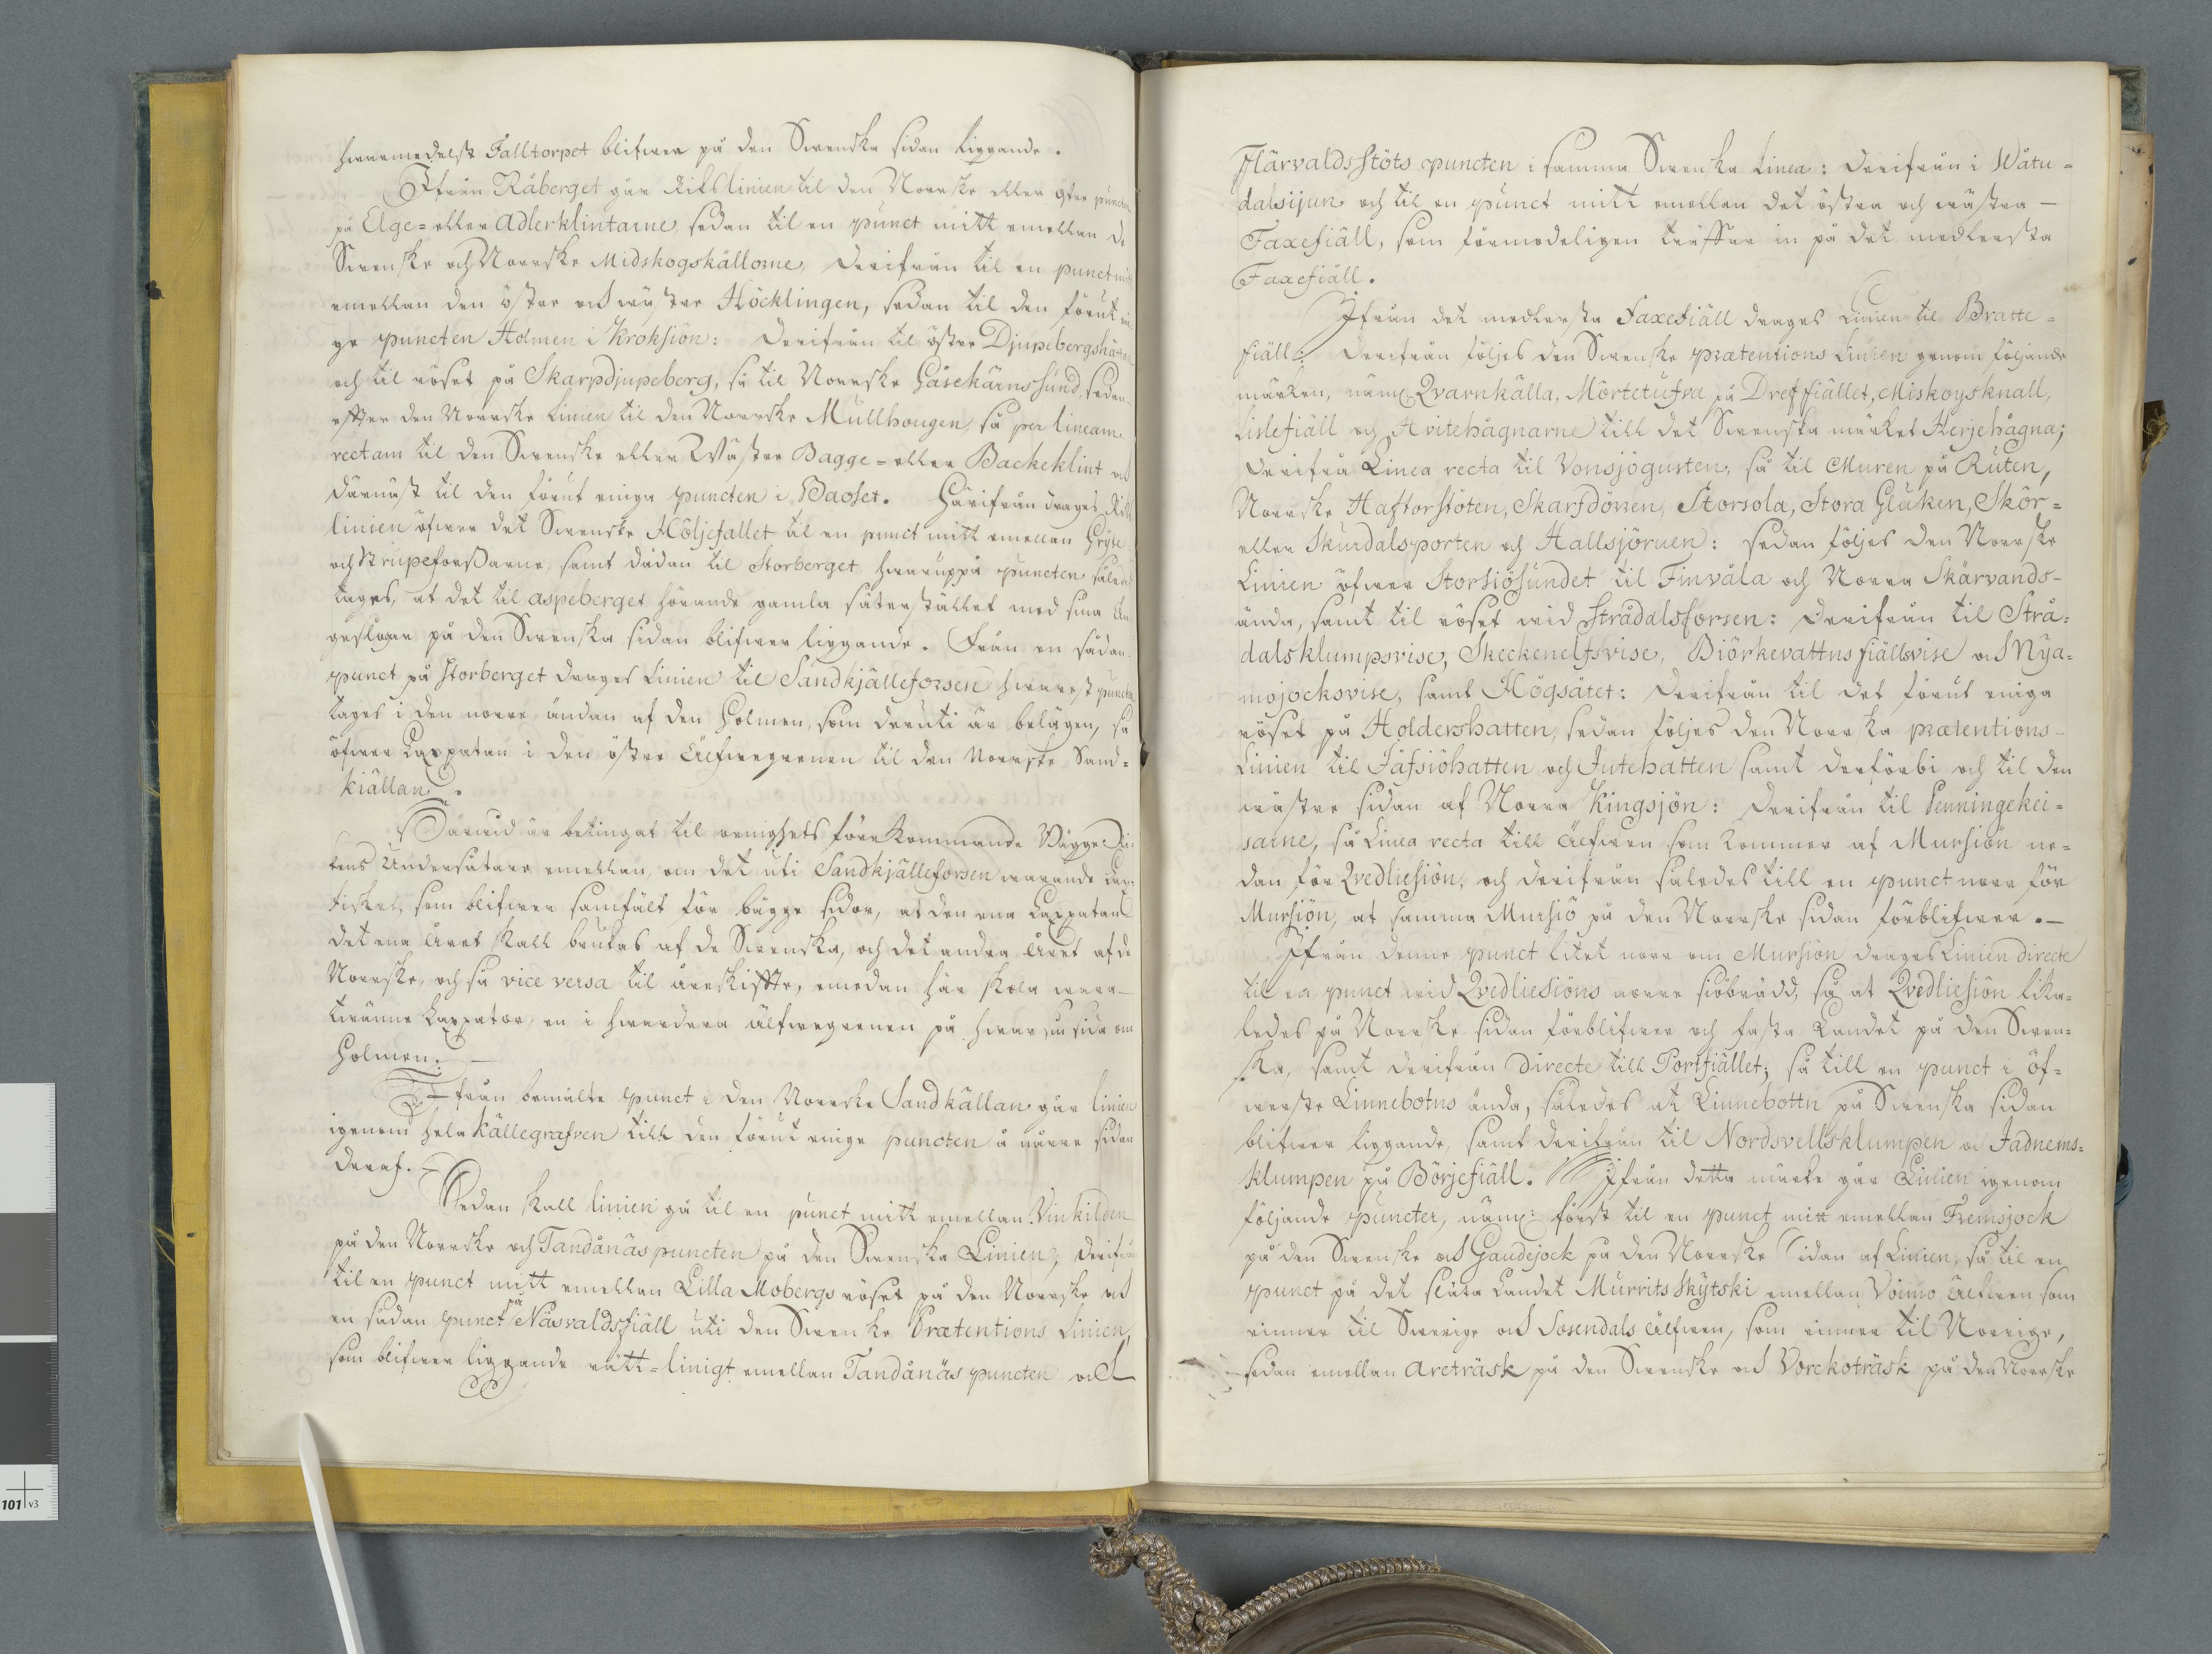 hwarmedelst Falltorpet blifwer på den Swenska sidan liggande.
Ifrån Råberget går Rikslinien til den Norrske eller östre puncten
på Elge= eller Adlerklintarne, sedan til en punct mitt emellan de
Swenske och Norrske Midskogskällorne, derifrån til en punct mitt
emellan den östre och wästre Höcklingen, sedan til den förut eni
ge puncten Holmen i Kroksiön: Derifrån til östre Djupebergshätten
och til röset på Skarpdjupeberg, så til Norrske Gåsekärnssund, sedan
efter den Norrske Linien til den Norrske Mullhougen, så per lineam
rectam til den Swenske eller Wästre Bagge= eller Backeklint och
därnäst til den förut eniga puncten i Baoset. Härifrån drages Riks
linien öfwer det Swenske Höljefallet til en punct mitt emellan Gryte
och Strupeforssarne, samt dädan til Storberget hwaruppå puncten således
tages, at det til Aspeberget hörande gamla säterstället med sina än
geslogar på den Swenska sidan blifwer liggande. Från en sådan
punct på Storberget drages Linien til Sandkjälleforsen hwarest puncten
tages i den norre ändan af den Holmen, som deruti är belägen, så
öfwer Laxpatan i den östre Älfwegrenen til den Norrske Sand=
kiällan.
Därwid är betingat til oenighets förekommande Bägge Ri=
kens Undersåtare emellan, om det uti Sandkjälleforsen warande Lax=
fisket, som blifwer samfält för bägge sidor, at den ena Laxpatan
det ena Året skall brukas af de Swenska, och det andra Året af de
Norrske, och så vice versa til årskiffte, emedan här skola wara
twänne Laxpator, en i hwardera älfwegrenen på hwar sin sida om
Holmen.
Ifrån bemälte punct i den Norrske Sandkällan går linien
igenom hela Källegrafven till den förut enige puncten å norre sidan
deraf.
Sedan skall linien gå til en punct mitt emellan Vinkilden
på den Norrske och Tandånäs puncten på den Swenska Linien; derifrån
til en punct mitt emellan Lilla Mobergs röset på den Norrske och
en sådan punct på Näsvaldsfiäll uti den Swenske Prætentions Linien,
som blifwer liggande rätt=linigt emellan Tandånäs puncten och
Flärvaldsstöts puncten i samma Swenska Linea: Derifrån i Wåtu=
dalsijun och til en punct mitt emellan det östra och wästra
Faxefiäll, som förmodeligen träffar in på det medlersta
Faxefiäll.
Ifrån det medlersta Faxefiäll drages Linien til Bratte=
fiäll: Derifrån följes den Swenske prætentions Linien genom följande
märken, näml: Qvarnkälla, Mörtetufva på Dreffiället, Miskoysknall,
Lislefiäll och Hvitehågnarne till det Swenska märket Herjehågna;
Derifrå Linea recta til Vonsjögusten, så til Muren på Ruten,
Norrske Haftorstöten, Skarfdörren, Storsola, Stora Gluken, Skör=
eller Skurdalsporten och Hallsjöruen: sedan följes den Norrske
Linien öfwer Storsiösundet til Finvåla och Norra Skärvands-
ända, samt til röset wid Strådalsforsen: Derifrån til Strå=
dalsklumpsvise, Skeckenelfsvise, Biörkevattns fiällsvise och Nya=
mojocksvise, samt Högsätet: Derifrån til det förut eniga
röset på Holdershatten, sedan följes den Norrska prætentions-
Linien til Jäfsiöhatten och Jutehatten samt derförbi och til den
wästre sidan af Norra Kingsjön: Derifrån til Penningekei=
sarne, så Linea recta till Älfwen som kommer af Mursiön ne=
dan för Qvedliesiön, och derifrån således till en punct norr för
Mursiön, at samma Mursiö på den Norrske sidan förblifwer.
Ifrån denne punct litet norr om Mursiön drages Linien directe
til en punct wid Qvedliesiöns norre siöbrädd, så at Qvedliesiön lika=
ledes på Norrske sidan förblifwer och fasta Landet på den Swen=
ska, samt derifrån directe till Portfiället; så till en punct i öf=
werste Linnebotns ända, således at Linnebottn på Swenska sidan
blifwer liggande, samt derifrån til Nordsvellsklumpen och Jadnems=
klumpen på Börjefiäll. Ifrån detta märke går Linien igenom
följande puncter, näml: först til en punct mitt emellan Fremsjock
på den Swenske och Gaudejock på den Norrske sidan af Linien, så til en
punct på det släta Landet Murrits Skytski emellan Voimo Älfwen som
rinner til Swerige och Sosendals älfwen, som rinner til Norrige,
sedan emellan Areträsk på den Swenske och Vorekoträsk på den Norrske